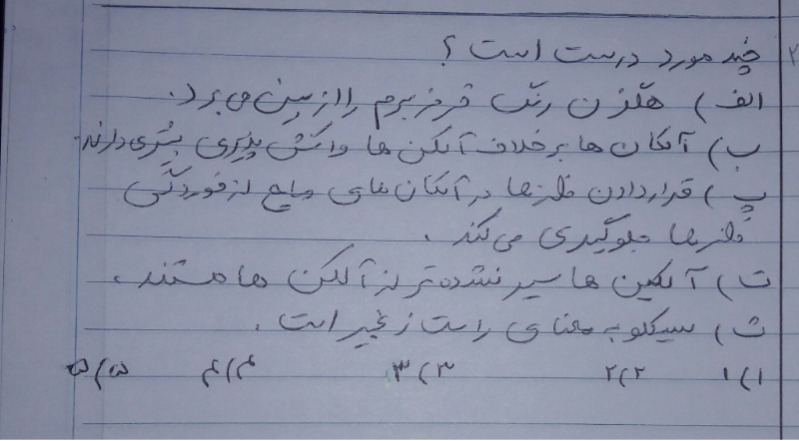 ۲ چند مورد درست است؟
الف) هگزن رنگ قرمز برم را از بین می برد.
ب) آلکان ها برخلاف آلکن ها واکنش پذیری بیشتری دارند.
پ) قرار دادن فلزها در آلکان های مایع از خوردگی
فلزها جلوگیری می کند.
ت) آلکین ها سیر نشده تر از آلکن ها هستند.
ث) سیکلو به معنای راست زنجیر است.
۱) ۱ ۲) ۲ ۳) ۳ ۴) ۴ ۵) ۵